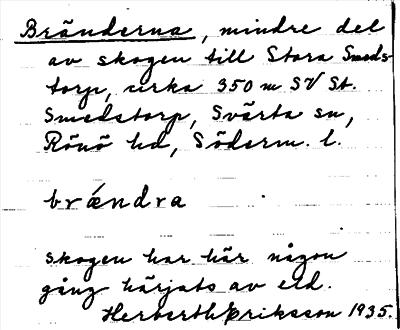 Bränderna, mindre del
av skogen till Stora Smeds-
torp, cirka 350 m SV St.
Smedstorp, Svärta sn,
Rönö hd, Söderm. l.
brä́ndra
skogen har här någon
gång härjats av eld.
Herberth Eriksson 1935.